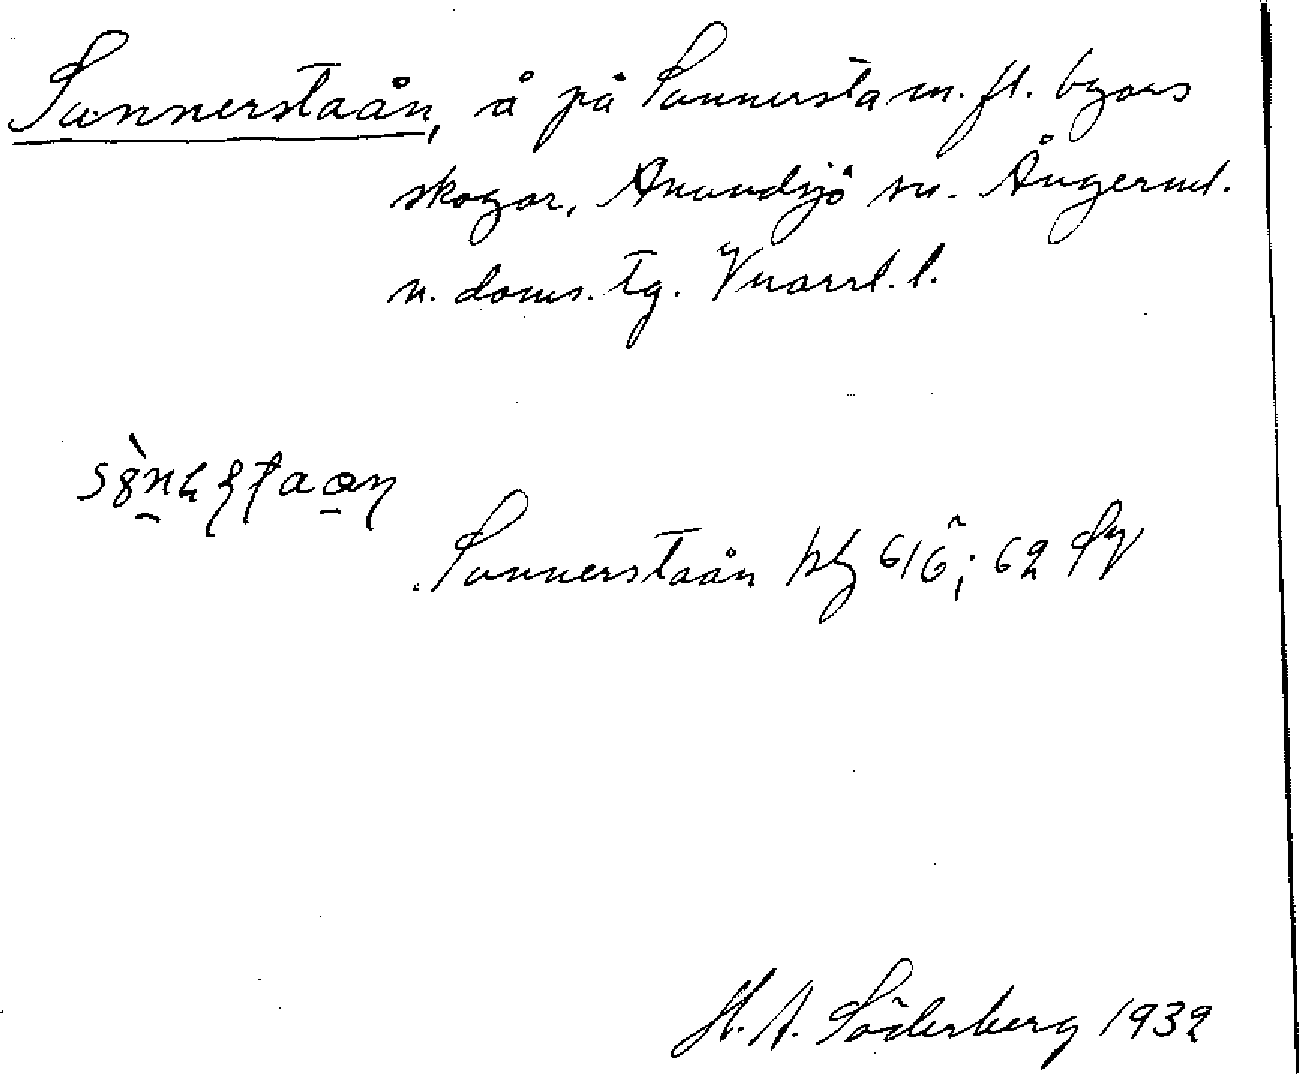 Sunnerstaån, å på Sunnersta m. fl. byars
skogar, Anundsjö sn. Ångerml.
n. doms. tg. Vnorrl. l.
Sunnerstaån blg 616; 62 SV
H. A. Söderberg 1932